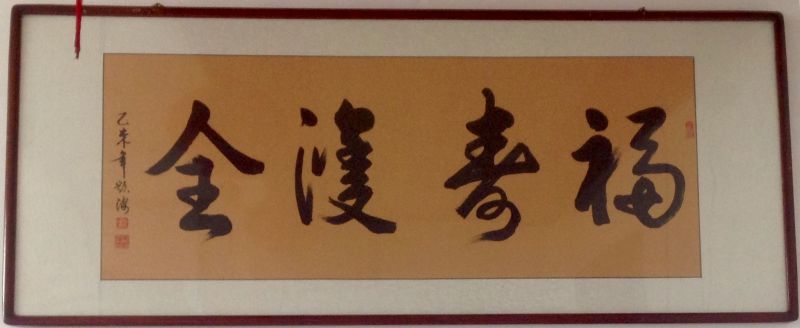 福寿雙全
乙未年